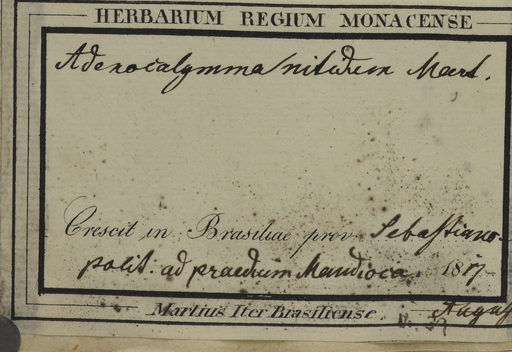 HERBARIUM REGIUM MONACENSE
Adenocalymma nitidum Mart.
Crescit in Brasiliae prov. Sebastiano-
polit. ad praedium Mandioca. 1817
Martius Iter Brasiliense. August